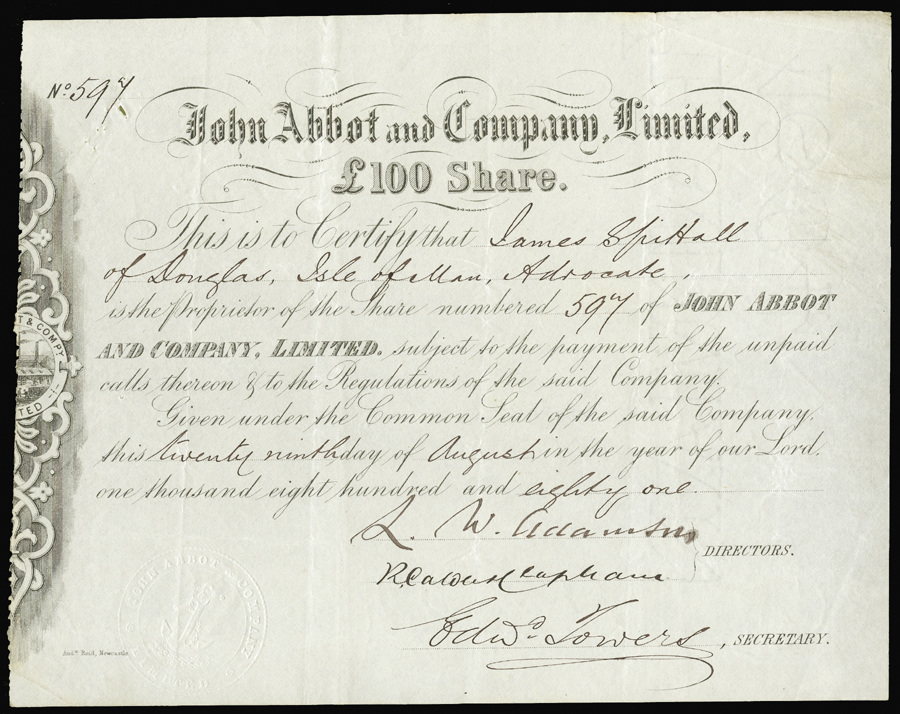 No. 597
John Abbot and Company, Limited,
£100 Share.
This is to Certify that James Spittall
of Douglas, Isle of Man, Advocate,
is the Proprietor of the Share numbered 597 of JOHN ABBOT
AND COMPANY, LIMITED. subject to the payment of the unpaid
calls thereon & to the Regulations of the said Company.
Given under the Common Seal of the said Company,
this twenty ninth day of August in the year of our Lord,
one thousand eight hundred and eighty one
L. W. Adamson
DIRECTORS.
Clapham
Edwd. Towers, SECRETARY.
T & COMPY
TED
JOHN ABBOT AND COMPANY LIMITED
Andw. Reid, Newcastle.